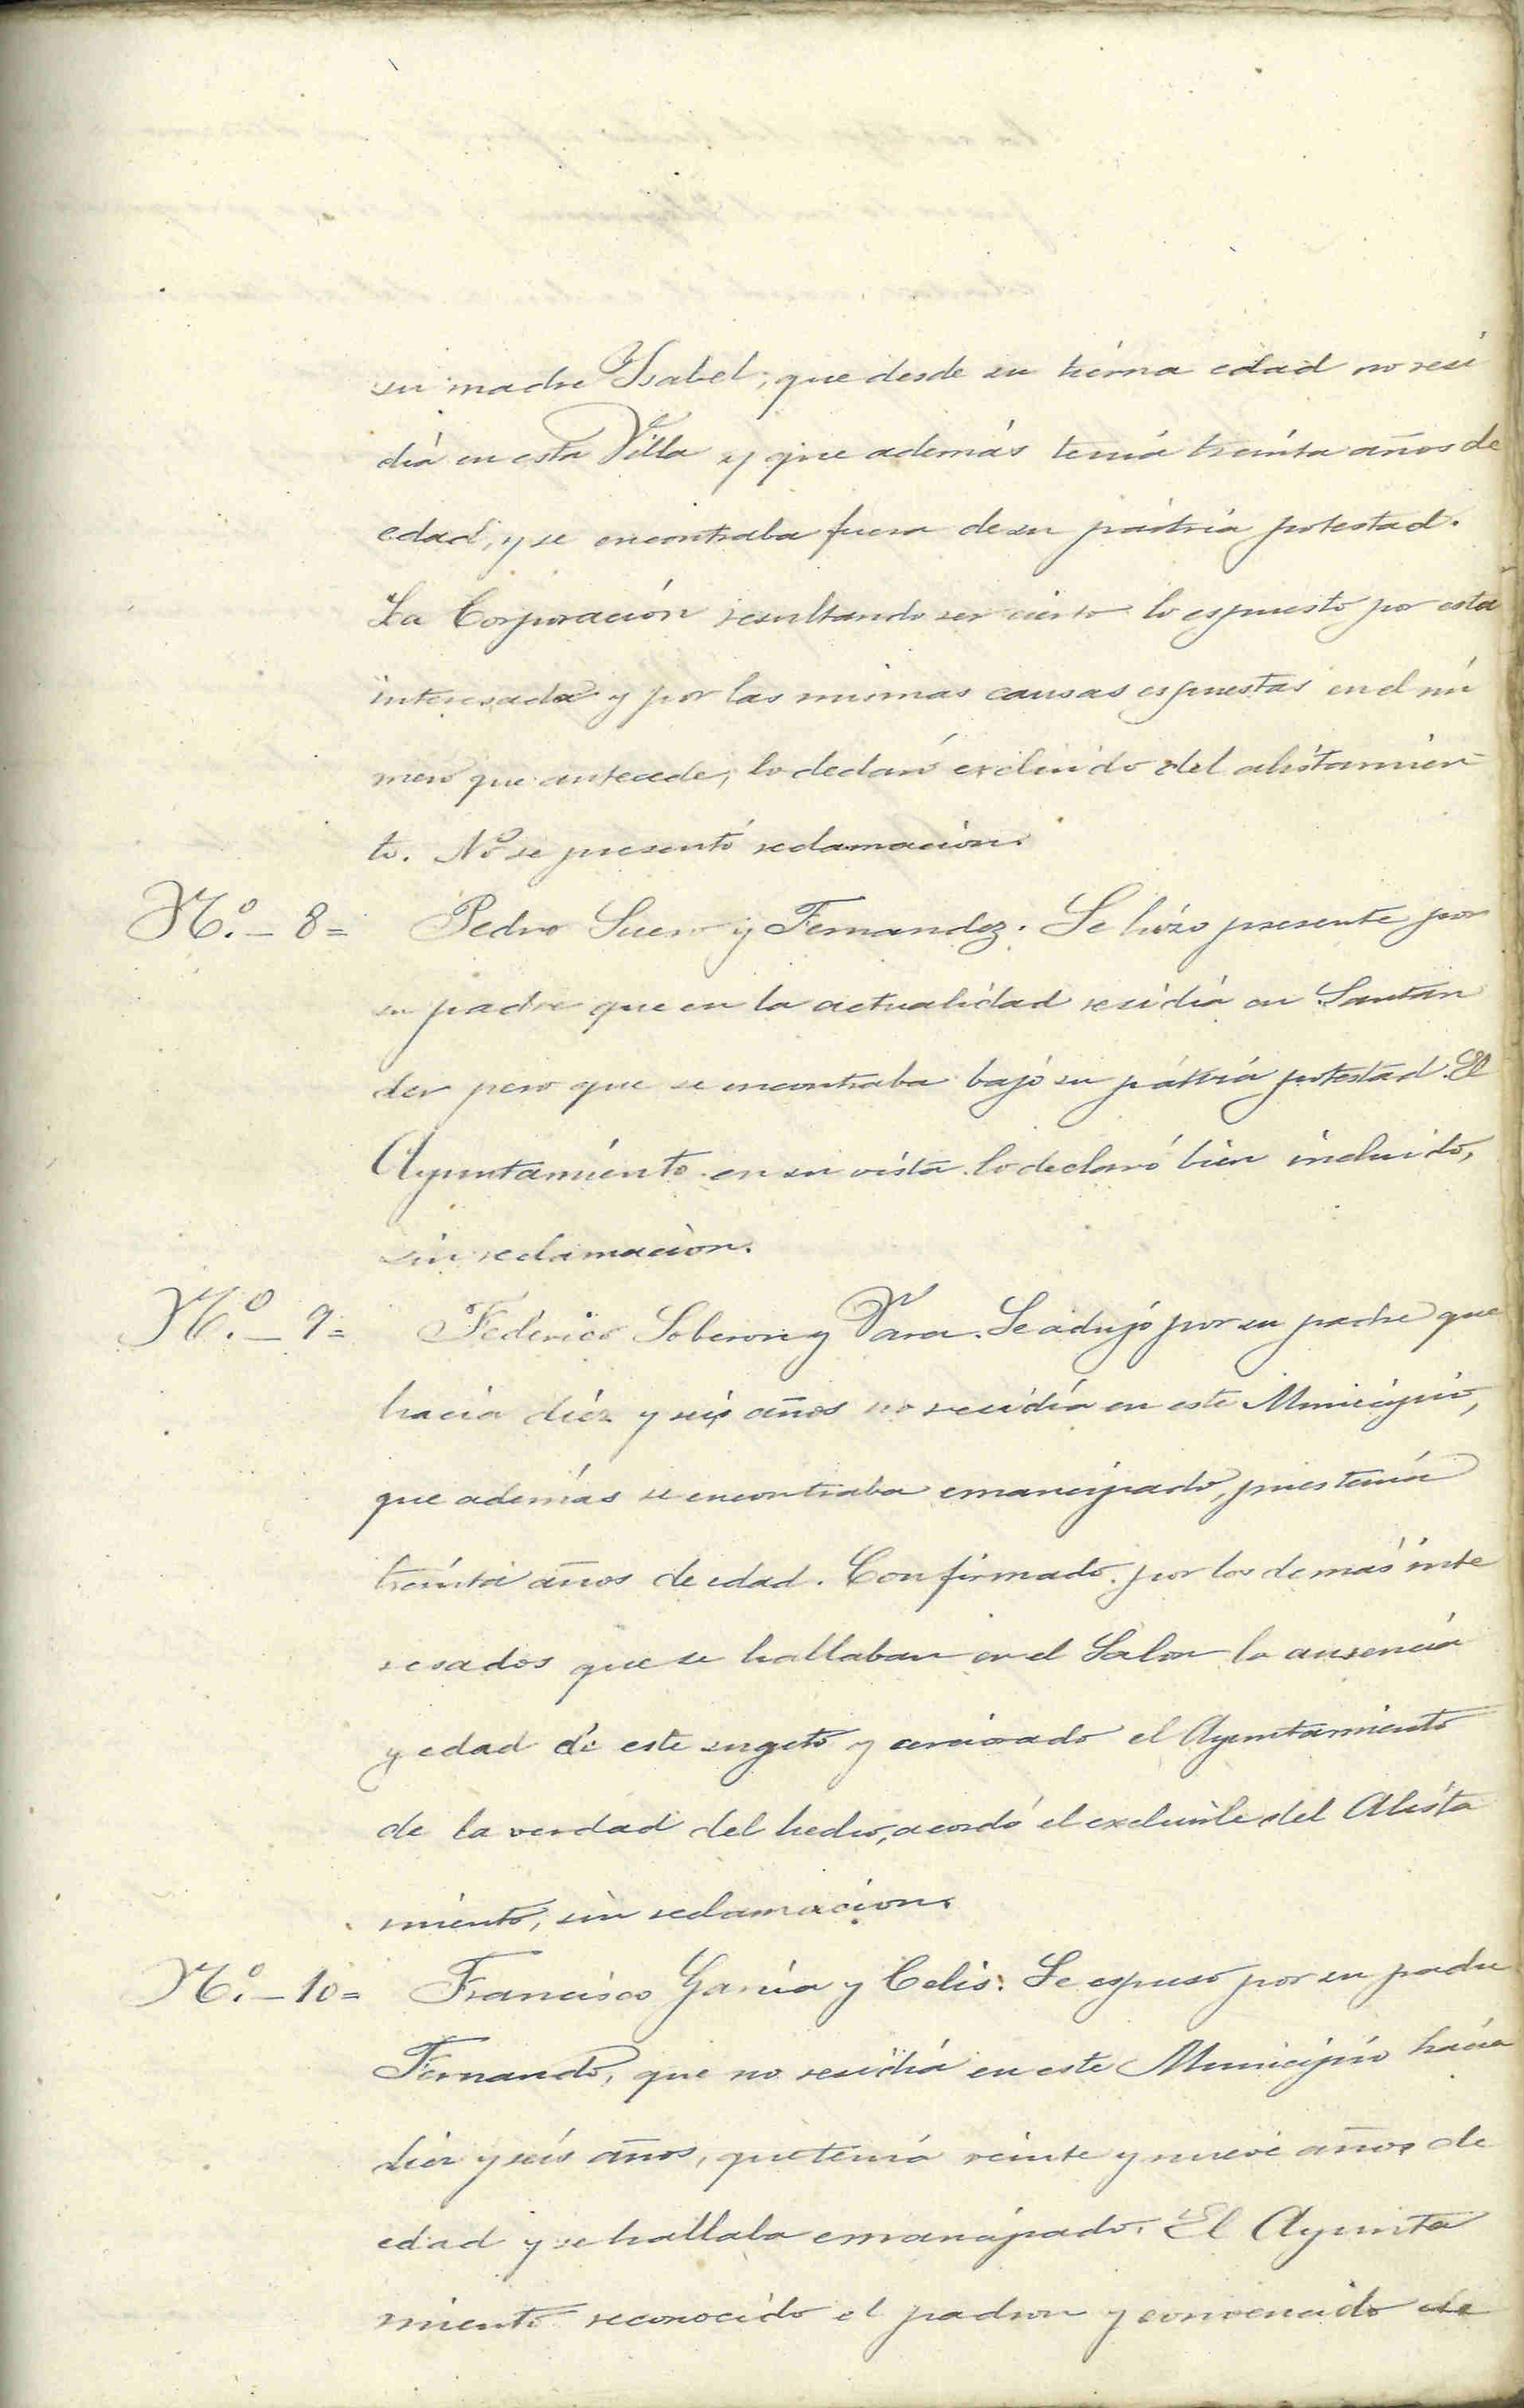 su madre Ysabel, que desde su tierna edad no resi
día en esta Villa y que además tenía treinta años de
edad, y se encontraba fuera de su pátria potestad.
La Corporación resultando ser cierto lo espuesto por esta
interesada y por las mismas causas espuestas en el nú
mero que antecede, lo declaró excluido del alistamien-
to. No se presentó reclamacion.
N.º - 8 = Pedro Suero y Fernandez. Se hizo presente por
su padre que en la actualidad residía en Santan
der pero que se encontraba bajo su pátria potestad. El
Ayuntamiento en su vista lo declaró bien incluido,
sin reclamacion.
N.º - 9 = Federico Soberon y Vara. Se adujó por su padre que
hacia diez y seis años no residía en este Municipio,
que además se encontraba emancipado, pues tenía
treinta años de edad. Confirmado por los demás inte
resados que se hallaban en el Salon la ausencia
y edad de este sugeto y cerciorado el Ayuntamiento
de la verdad del hecho, acordó el excluirle del Alista
miento, sin reclamacion.
N.º - 10 = Francisco Garcia y Celis. Se espuso por su padre
Fernando, que no residía en este Municipio hácia
diez y seis años, que tenía veinte y nueve años de
edad y se hallaba emancipado. El Ayunta
miento reconocido el padron y convencido de